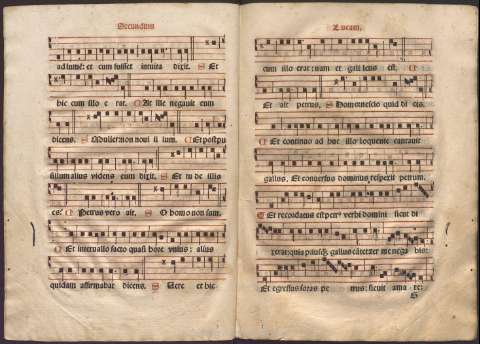 Secundum
ad lumē: et cum fuisset intuita dixit. S Et
hic cum illo erat. C At ille negauit eum
dicens. S Mulier non noui illum. C Et post pu
sillum alius videns eum dixit. S Et tu de illis
es? C Petrus vero ait. S O homo non sum.
C Et interuallo facto quasi hore vnius: alius
quidam affirmabat dicens. S Uere et hic
Lucam.
cum illo erat: nam et galileus est. C
Et ait petrus. S Homo nescio quid dicis.
C Et continuo ad huc illo loquente cantauit
gallus. Et conuersus dominus respexit petrum.
C Et recordatus est petrꝰ verbi domini sicut di
xerat: quia priusq̄ gallus cātet ter me negabis:
Et egressus foras petrus: fleuit amare: